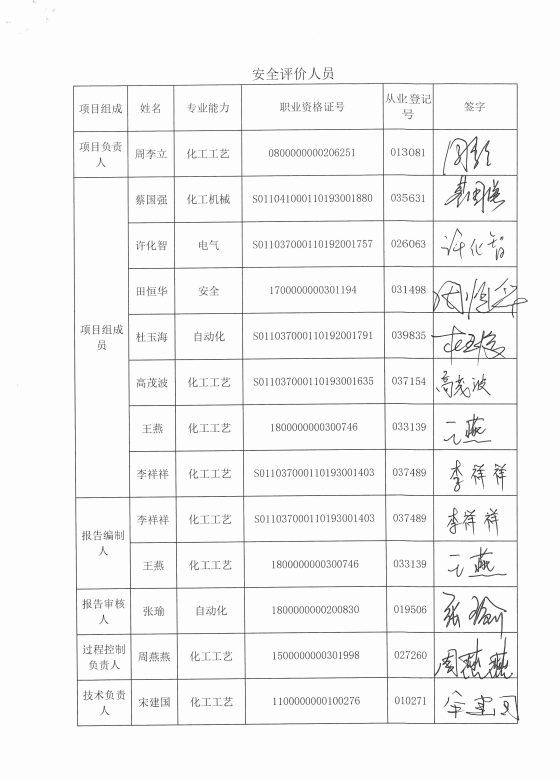 安全评价人员
项目组成 姓名 专业能力 职业资格证号 从业登记号 签字
项目负责人 周李立 化工工艺 0800000000206251 013081
项目组成员 蔡国强 化工机械 S011041000110193001880 035631 蔡国强
许化智 电气 S011037000110192001757 026063 许化智
田恒华 安全 1700000000301194 031498 田恒华
杜玉海 自动化 S011037000110192001791 039835 杜玉海
高茂波 化工工艺 S011037000110193001635 037154 高茂波
王燕 化工工艺 1800000000300746 033139 王燕
李祥祥 化工工艺 S011037000110193001403 037489 李祥祥
报告编制人 李祥祥 化工工艺 S011037000110193001403 037489 李祥祥
王燕 化工工艺 1800000000300746 033139 王燕
报告审核人 张瑜 自动化 1800000000200830 019506 张瑜
过程控制负责人 周燕燕 化工工艺 1500000000301998 027260 周燕燕
技术负责人 宋建国 化工工艺 1100000000100276 010271 宋建国